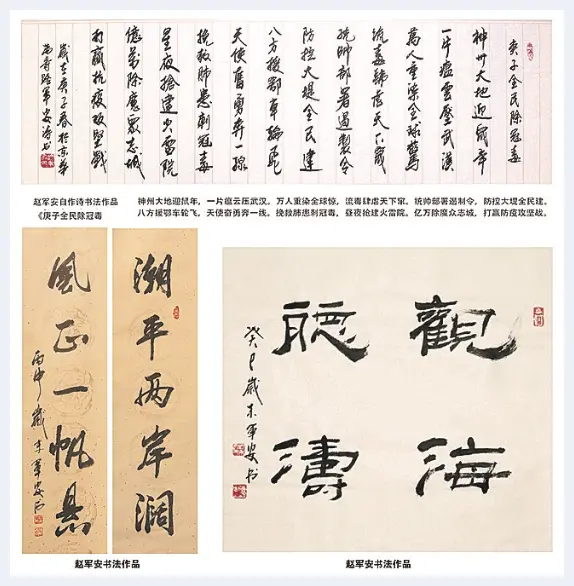 庚子全民除冠毒
神州大地迎鼠年
一片瘟雲壓武漢
萬人重染全球驚
流毒肆虐天下竄
統帥部署遏製令
防控大堤全民建
八方援鄂車輪飛
天使奮勇奔一線
挽救肺患制冠毒
星夜搶建火雷院
億萬除魔眾志城
打贏抗疫攻堅戰
歲在庚子春於京華
萬壽路軍安詩书
赵军安自作诗书法作品
《庚子全民除冠毒
神州大地迎鼠年，一片瘟云压武汉。万人重染全球惊，流毒肆虐天下窜。统帅部署遏制令，防控大堤全民建。
八方援鄂车轮飞，天使奋勇奔一线。挽救肺患制冠毒，昼夜抢建火雷院。亿万除魔众志城，打赢防疫攻坚战。
潮平两岸阔
風正一帆悬
丙申歲末軍安书
赵军安书法作品
觀海
聽濤
癸巳歲末軍安书
赵军安书法作品